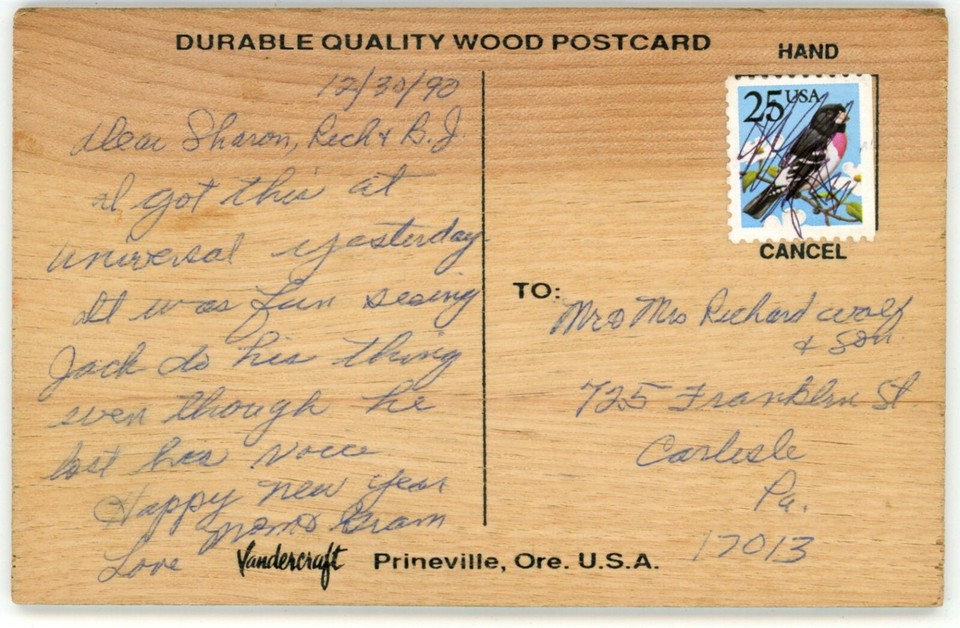 DURABLE QUALITY WOOD POSTCARD
HAND
25 USA
CANCEL
12/30/90
Dear Sharon, Rich & B.J.
I got this at
Universal yesterday
It was fun seeing
Jack do his thing
even though he
lost his voice
Happy new year
Mom & Gram
Love
TO:
Mr & Mrs Richard Wolf
& Son
725 Franklin St
Carlisle
Pa.
17013
Vandercraft Prineville, Ore. U.S.A.